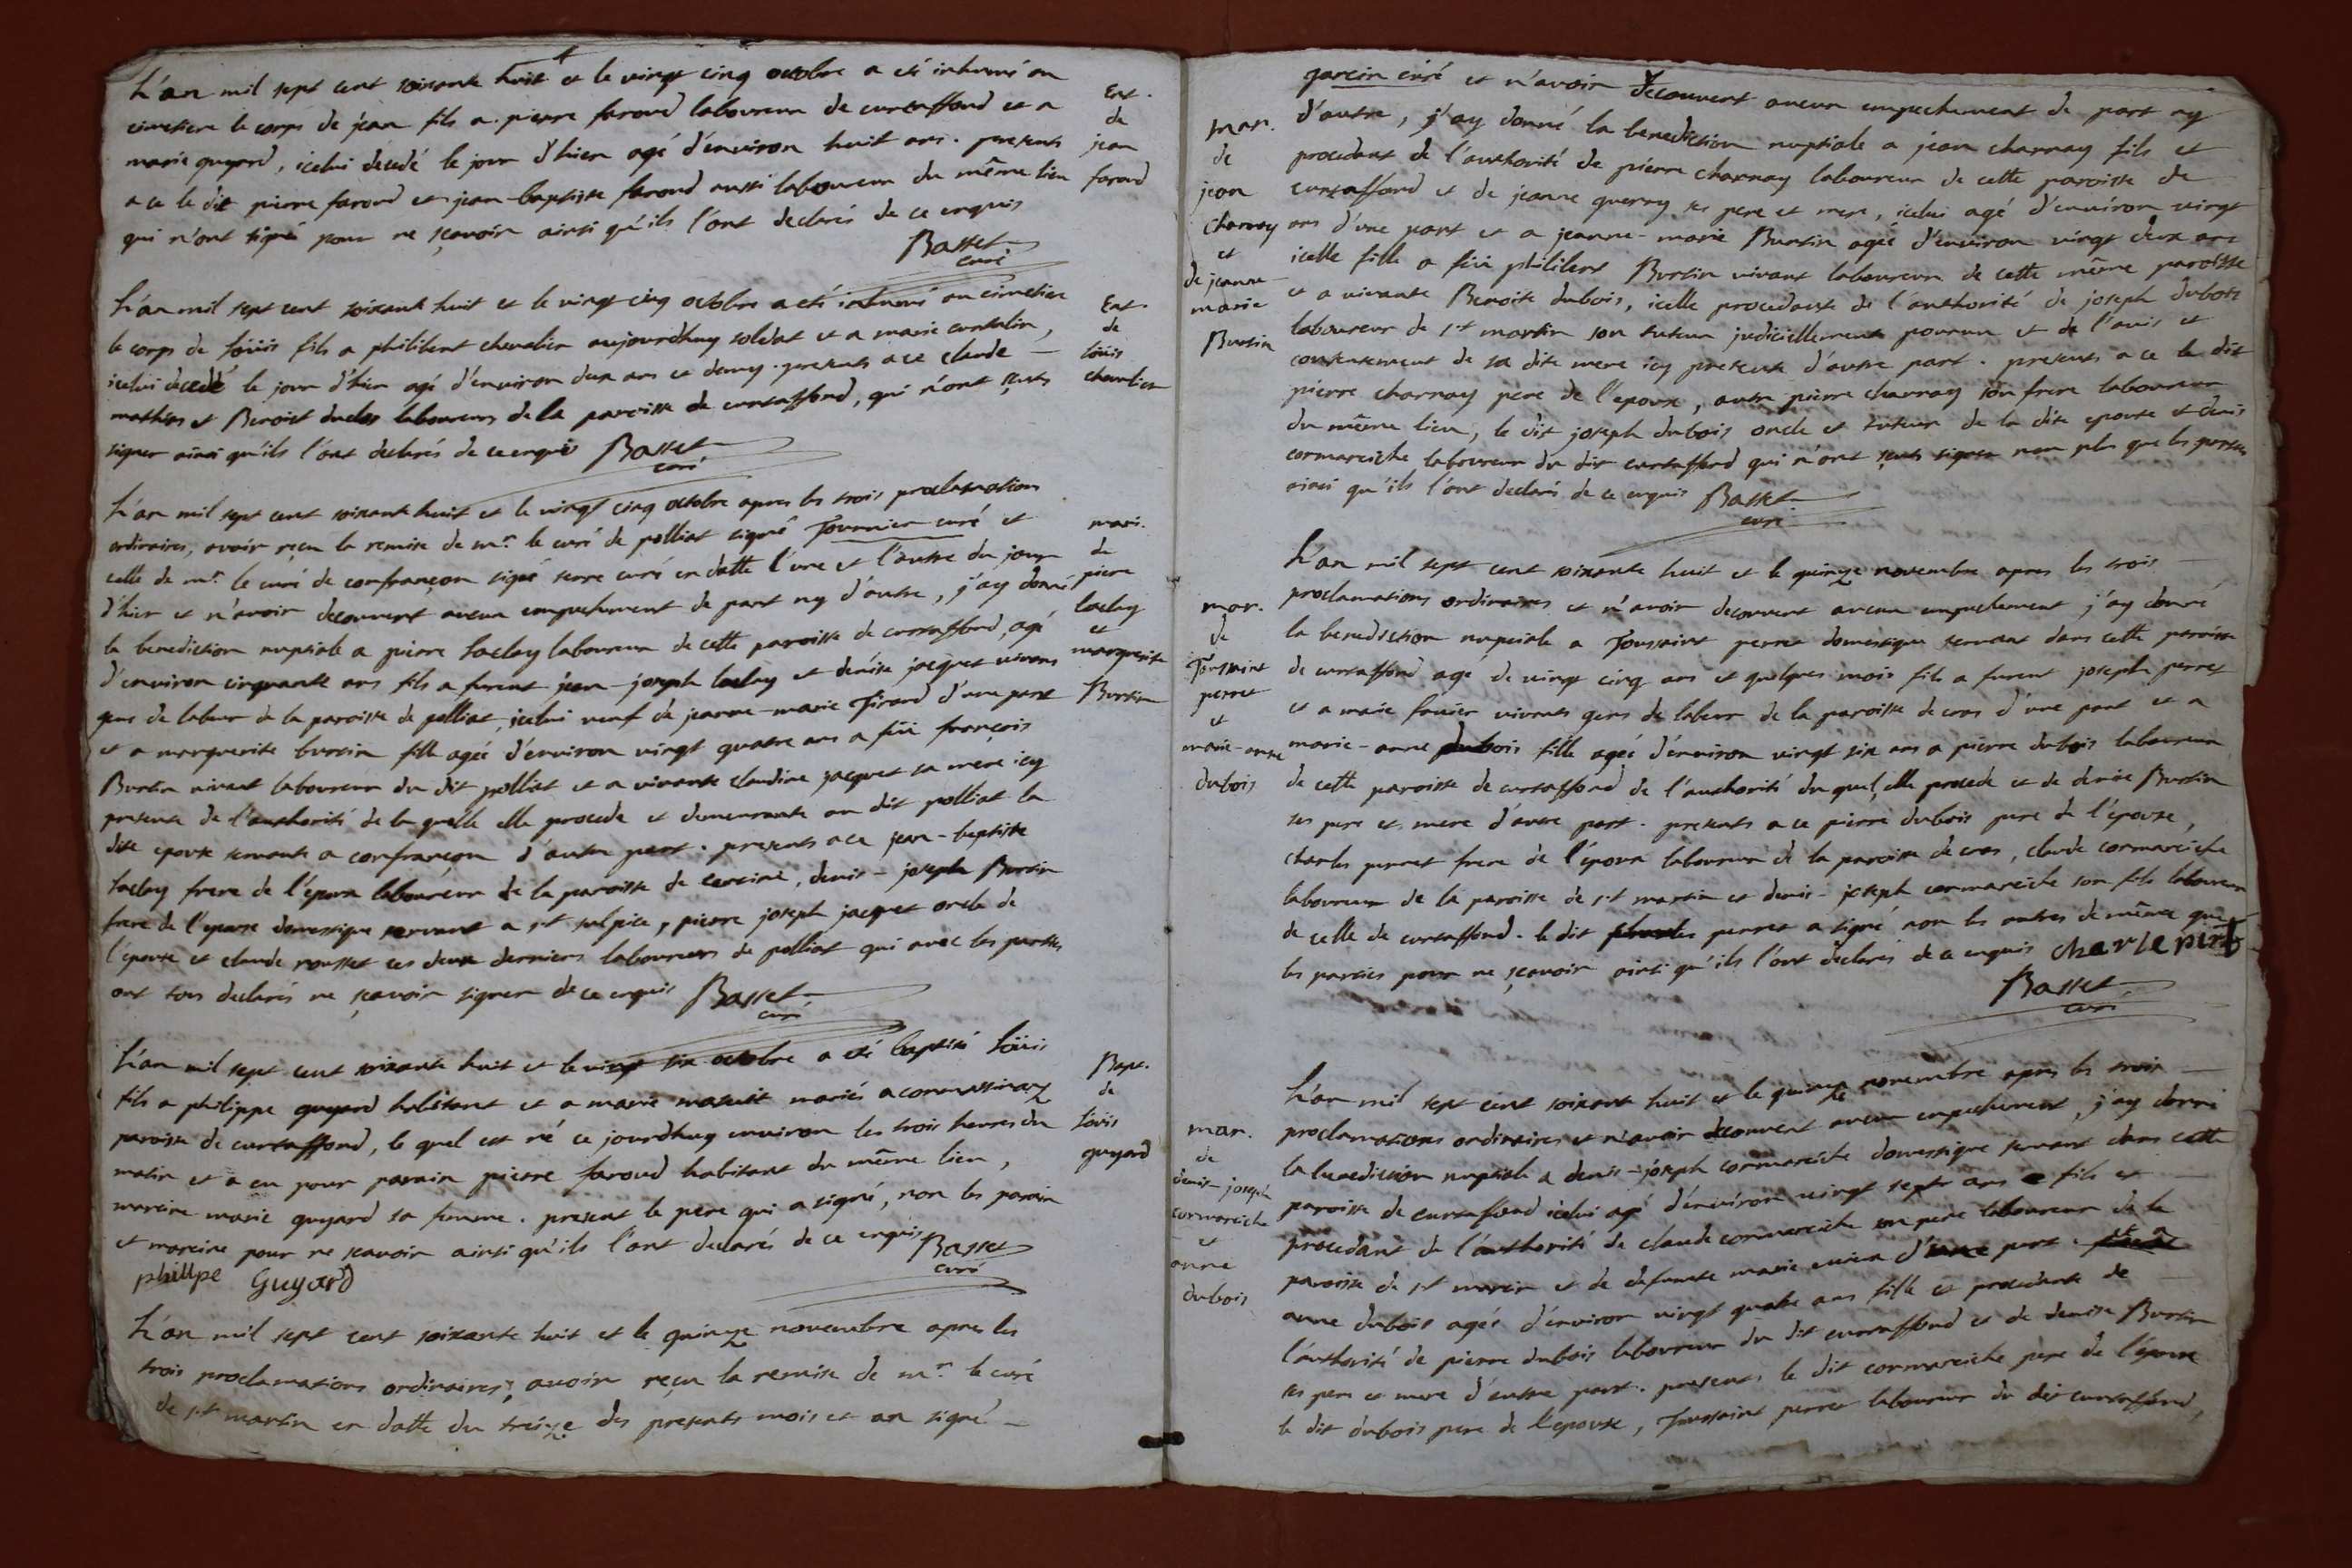 L'an mil sept cent soixante huit et le vingt cinq octobre a été inhumé au
cimetiere le corps de jean fils a pierre faroud laboureur de curtaffond et a
marie guyard, icelui décédé le jour d'hier agé d'environ huit ans. presents
a ce le dit pierre faroud et jean-baptiste faroud aussi laboureur du même lieu
qui n'ont signé pour ne sçavoir ainsi qu'ils l'ont declarés de ce enquis
Basset
curé
Ent.
de
jean
faroud
L'an mil sept cent soixante huit et le vingt cinq octobre a été inhumé au cimetiere
le corps de Loüis fils a philibert chevalier aujourdhuy soldat et a marie curtalin,
icelui decedé le jour d'hier agé d'environ deux ans et demy. presents a ce claude
mathias et Benoist duclos laboureurs de la paroisse de curtaffond, qui n'ont sçus
signer ainsi qu'ils l'ont declarés de ce enquis Basset
curé
Ent.
de
Loüis
chevalier
L'an mil sept cent soixante huit et le vingt cinq octobre apres les trois proclamations
ordinaires, avoir reçu la remise de mr. le curé de polliat signé Tournier curé et
celle de mr. le curé de confrançon signé serre curé en datte l'une et l'autre du jour
d'hier et n'avoir decouvert aucun empechement de part ny d'autre, j'ay donné
la benediction nuptiale a pierre Laclay laboureur de cette paroisse de curtaffond, agé
d'environ cinquante ans fils a furent jean-joseph laclay et denise jacquet vivans
gens de labeur de la paroisse de polliat, icelui veuf de jeanne-marie Tirand d'une part
et a marguerite burtin fille agée d'environ vingt quatre ans a füe françois
Burtin vivant laboureur du dit polliat et a vivante claudine jacquet sa mere icy
presente de l'authorité de la quelle elle procede et demeurante au dit polliat la
dite epouse servante a confrançon d'autre part. presents a ce jean-baptiste
Laclay frere de l'époux laboureur de la paroisse de , denis-joseph Burtin
frere de l'epouse domestique servant a st sulpice, pierre joseph jacquet oncle de
l'épouse et claude rousset ces deux derniers laboureurs de polliat qui avec les parties
ont tous declarés ne sçavoir signer de ce enquis Basset
curé
mari.
de
piere
laclay
et
marguerite
Burtin
L'an mil sept cent soixante huit et le vingt six octobre a été baptisé Loüis
fils a philippe guyard habitant et a marie mariés a cormassinay
paroisse de curtaffond, le quel est né ce jourdhuy environ les trois heures du
matin et a eu pour parain pierre faroud habitant du même lieu,
mareine marie guyard sa femme. present le pere qui a signé, non les parain
et mareine pour ne sçavoir ainsi qu'ils l'ont declarés de ce enquis Basset
curé
phillpe Guyard
Bapt.
de
Loüis
guyard
L'an mil sept cent soixante huit et le quinze novembre apres les
trois proclamations ordinaires, avoir reçu la remise de mr. le curé
de st martin en datte du treize des presents mois et an signé
garcin curé et n'avoir decouvert aucun empechement de part ny
d'autre, j'ay donné la benediction nuptiale a jean charnay fils et
procedant de l'authorité de pierre charnay laboureur de cette paroisse de
curtaffond et de jeanne querry ses pere et mere, icelui agé d'environ vingt
ans d'une part et a jeanne-marie Burtin agée d'environ vingt deux ans
icelle fille a füe philibert Burtin vivant laboureur de cette même paroisse
et a vivante Benoite dubois, icelle procedante de l'authorité de joseph dubois
laboureur de st martin son tuteur judiciellement pourvu et de l'avis et
contentement de sa dite mere icy presente d'autre part. presents a ce le dit
pierre charnay pere de l'epoux, autre pierre charnay son frere laboureur
du même lieu, le dit joseph dubois oncle et tuteur de la dite epouse et denis
cormareiche laboureur du dit curtaffond qui n'ont sçus signer non plus que les parties
ainsi qu'ils l'ont declarés de ce enquis Basset
curé
mar.
de
jean
charnay
et
de jeanne
marie
Burtin
L'an mil sept cent soixante huit et le quinze novembre apres les trois
proclamations ordinaires et n'avoir decouvert aucun empechement j'ay donné
la benediction nupciale a Toussaint perret domestique servant dans cette paroisse
de curtaffond agé de vingt cinq ans et quelques mois fils a furent joseph perret
et a marie favier vivants gens de labeur de la paroisse de cras d'une part et a
marie-anne dubois fille agée d'environ vingt six ans a pierre dubois laboureur
de cette paroisse de curtaffond de l'authorité du quel elle procede et de denise Burtin
ses pere et mere d'autre part. presents a ce pierre dubois pere de l'épouse,
charles perret frere de l'époux laboureur de la paroisse de cras, claude cormareiche
laboureur de la paroisse de st martin et denis-joseph cormareiche son fils laboureur
de celle de curtaffond. le dit charles perret a signé non les autres de même que
les parties pour ne sçavoir ainsi qu'ils l'ont declarés de ce enquis charle piret
Basset
curé
mar.
de
Toussaint
perret
et
marie-anne
dubois
L'an mil sept cent soixante huit et le quinze novembre apres les trois
proclamations ordinaires et n'avoir decouvert aucun empechement, j'ay donné
la benediction nuptiale a denis-joseph cormareiche domestique servant dans cette
paroisse de curtaffond icelui agé d'environ vingt sept ans fils et
procedant de l'authorité de claude cormareiche son pere laboureur de la
paroisse de st martin et de defunte marie d'une part et a
anne dubois agée d'environ vingt quatre ans fille et procedante de
l'authorité de pierre dubois laboureur du dit curtaffond et de denise Burtin
ses pere et mere d'autre part. presents le dit cormareiche pere de l'époux
le dit dubois pere de l'epouse, Toussaint perret laboureur du dit curtaffond,
mar.
de
denis-joseph
cormareiche
et
anne
dubois